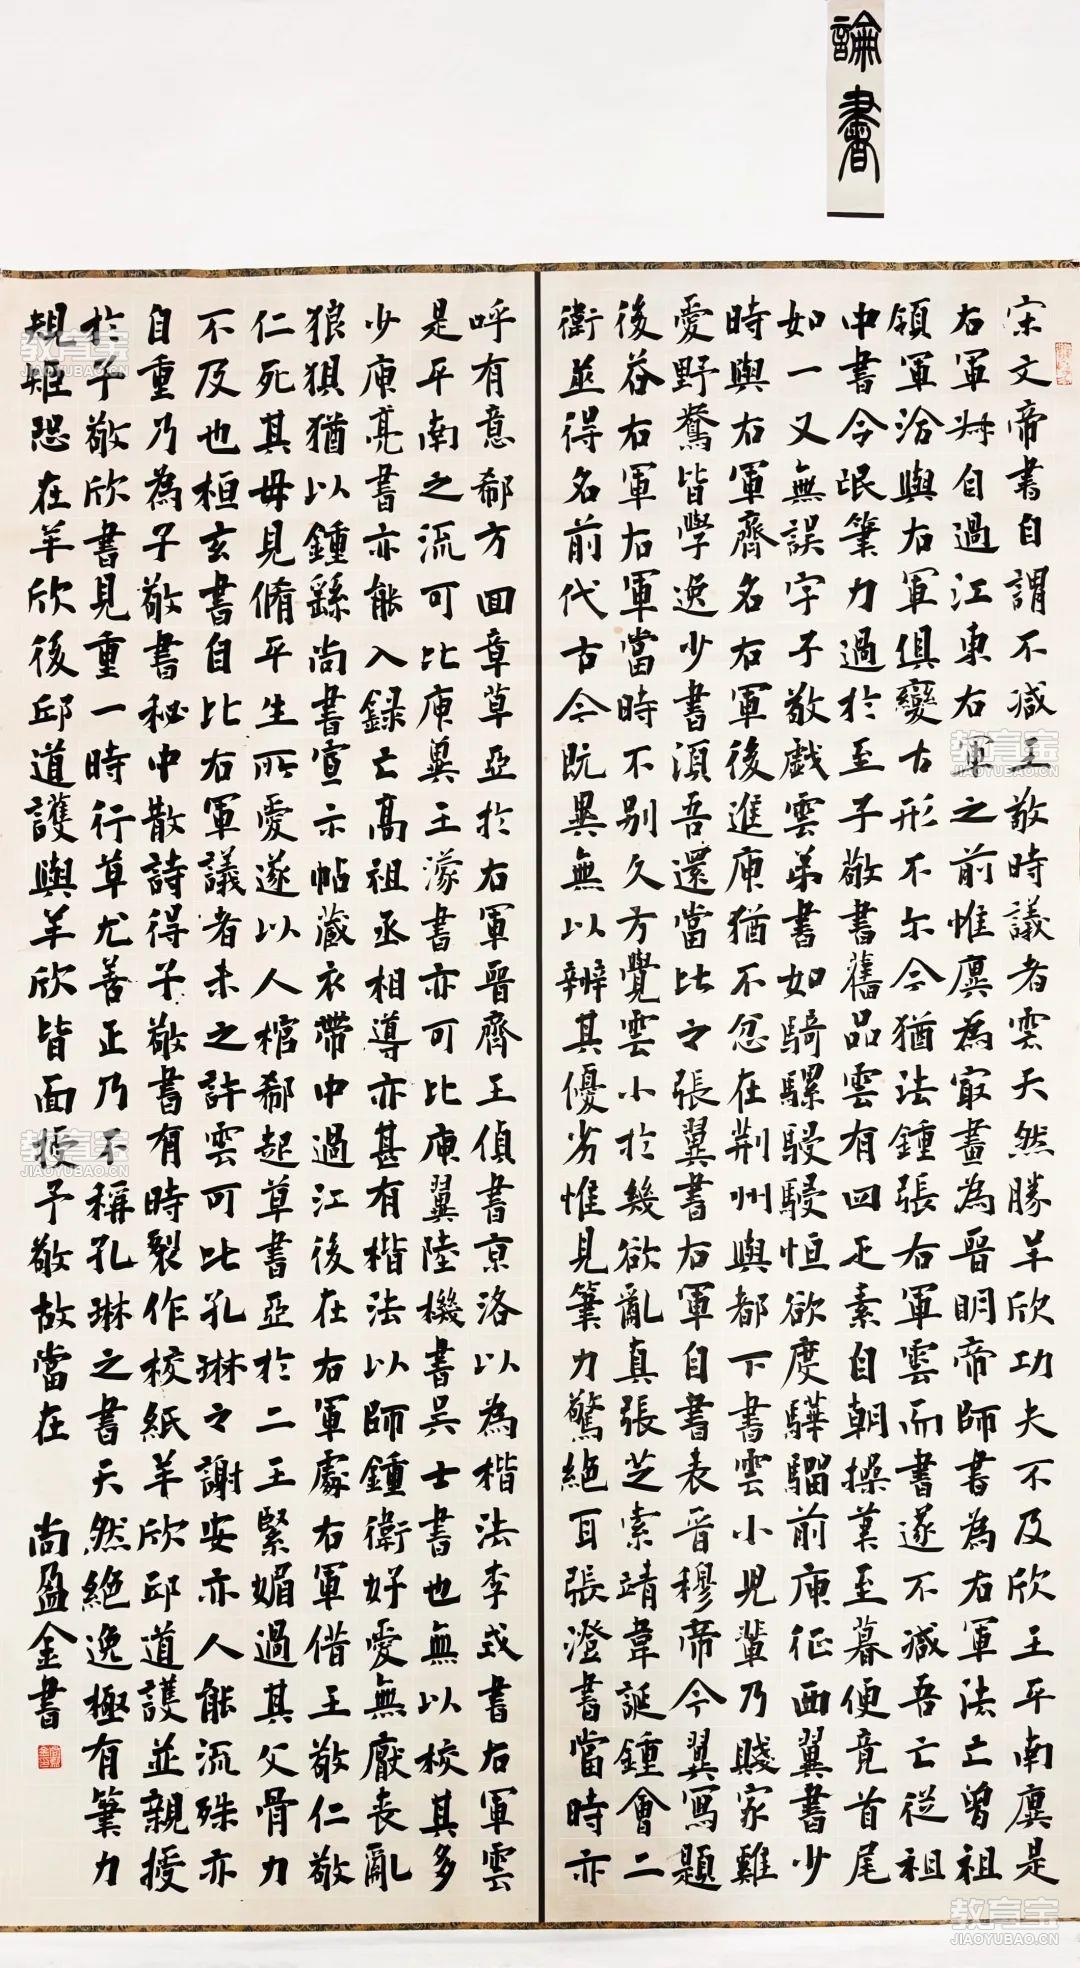 論書
宋文帝書自謂不減王敬時議者雲天然勝羊欣功夫不及欣王平南廙是
右軍叔自過江東右軍之前惟廙為冣畫為晉明帝師書為右軍法亡曾祖
領軍洽與右軍俱變古形不尔今猶法鍾張右軍雲而書遂不減吾亡從祖
中書令珉筆力過於至子敬書舊品雲有四疋素自朝操莫至暮便竟首尾
如一又無誤字子敬戲雲弟書如騎騾駸駸恒欲度驊騮前庾征西翼書少
時與右軍齊名右軍後進庾猶不忿在荊州與都下書雲小兒輩乃賤家雞
愛野鶩皆學逸少書須吾還當比之張翼書右軍自書表晉穆帝今翼寫題
後答右軍右軍當時不別久方覺雲小於幾欲亂真張芝索靖韋誕鍾會二
衛並得名前代古今既異無以辨其優劣惟見筆力驚絕耳張澄書當時亦
呼有意郗方回章草亞於右軍晉齊王偵書京洛以為楷法李式書右軍雲
是平南之流可比庾翼王濛書亦可比庾翼陸機書吳士書也無以校其多
少庾亮書亦能入録亡高祖丞相導亦甚有楷法以師鍾衛好愛無厭喪亂
狼狽猶以鍾繇尚書宣示帖藏衣帶中過江後在右軍處右軍借王敬仁敬
仁死其母見脩平生所愛遂以人棺郗起草書亞於二王緊媚過其父骨力
不及也桓玄書自比右軍議者未之許雲可比孔琳之謝安亦人能流殊亦
自重乃為子敬書秘中散詩得子敬書有時裂作校紙羊欣邱道護並親授
於子敬欣書見重一時行草尤善正乃不稱孔琳之書天然絕逸極有筆力
規矩恐在羊欣後邱道護與羊欣皆面授予敬故當在 尚盈金書
教育宝
JIAOYUBAO.CN
教育宝
JIAOYUBAO.CN
教育宝
JIAOYUBAO.CN
教育宝
JIAOYUBAO.CN